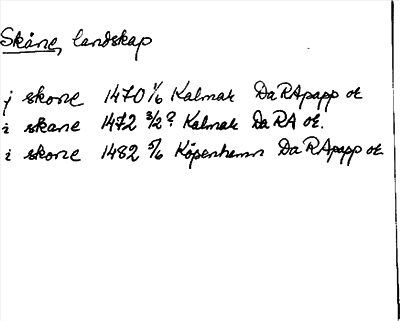 Skåne, landskap
j skone 1470 1/6 Kalmar DaRApapp or
i skane 1472 3/2? Kalmar DaRA or.
i skone 1482 5/6 Köpenhamn DaRApapp or